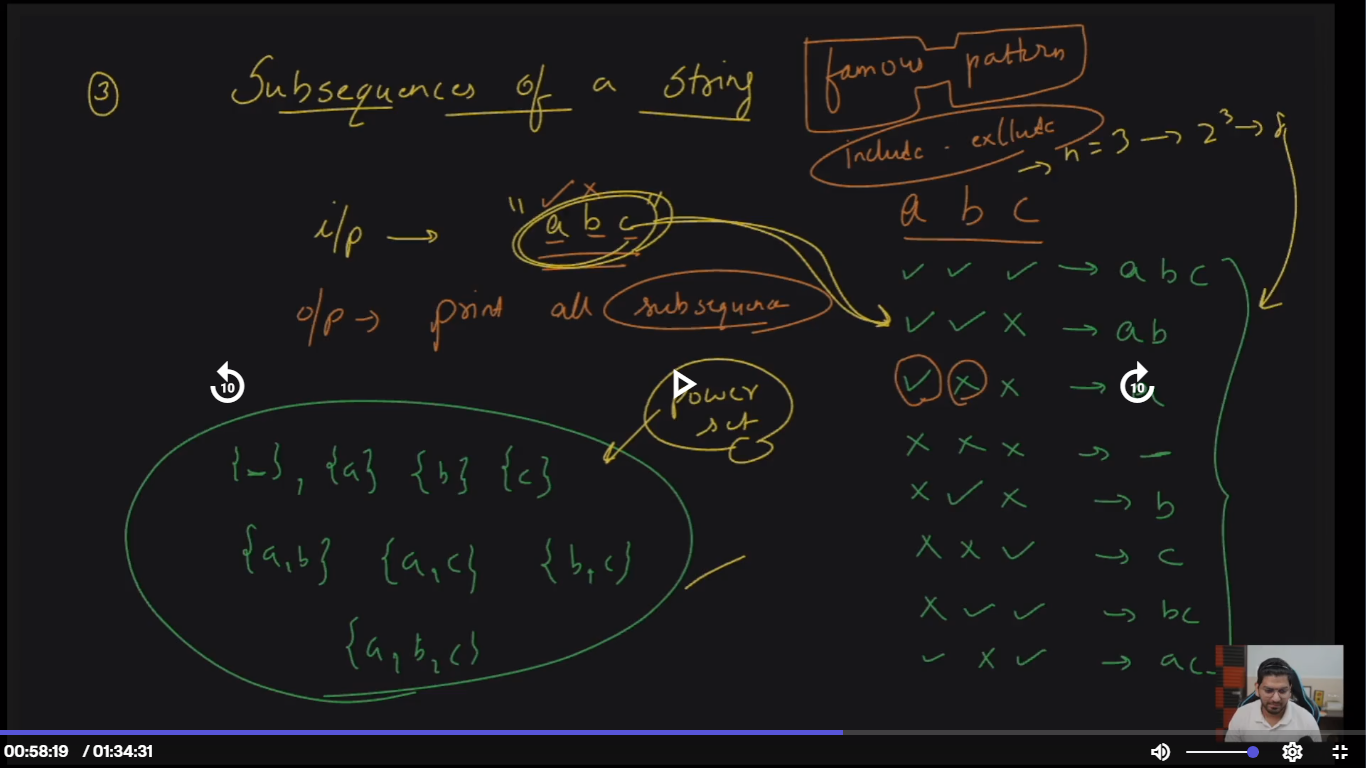 ③ Subsequences of a string
famous pattern
include - exclude
→ n = 3 → 2³ → 8
i/p → "abc"
a b c
o/p → print all subsequence
✓ ✓ ✓ → abc
✓ ✓ x → ab
✓ x x →
power set
{_}, {a} {b} {c}
{a,b} {a,c} {b,c}
{a,b,c}
x x x → _
x ✓ x → b
x x ✓ → c
x ✓ ✓ → bc
✓ x ✓ → ac
10
10
00:58:19 / 01:34:31